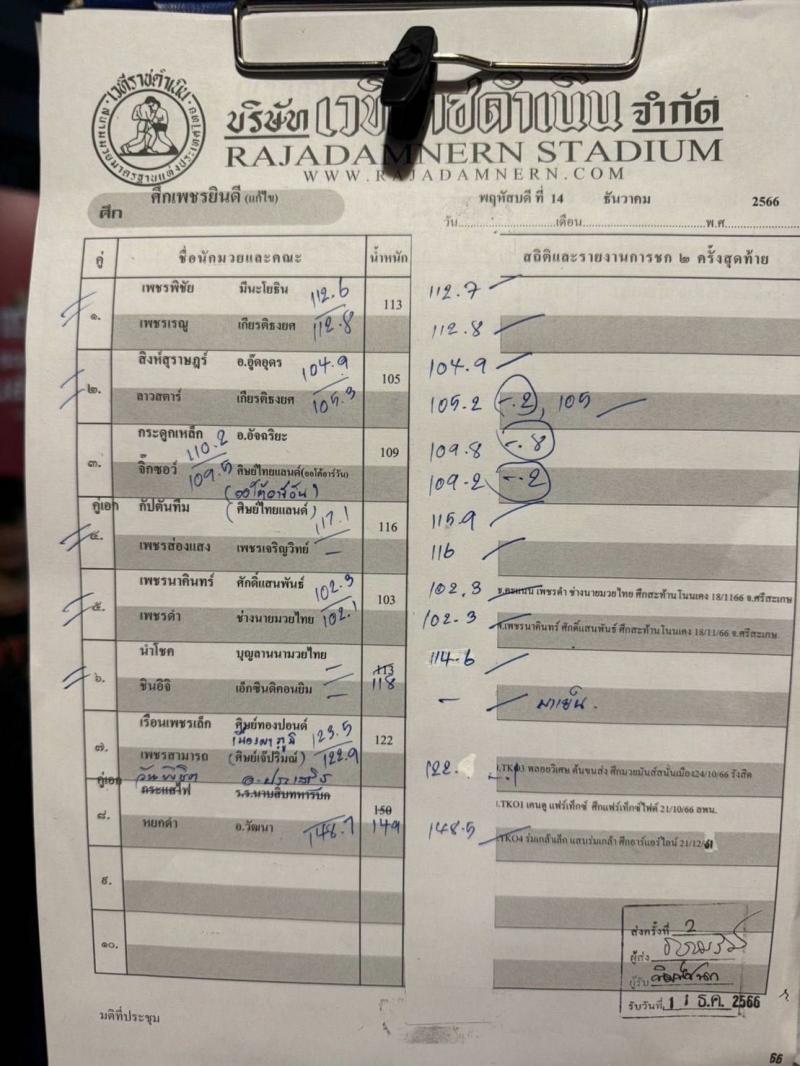 เวทีราชดำเนิน
บริษัท เวทีราชดำเนิน จำกัด
RAJADAMNERN STADIUM
WWW.RAJADAMNERN.COM
ศึก ศึกเพชรยินดี (แก้ไข)
พฤหัสบดี ที่ 14 ธันวาคม 2566
วัน เดือน พ.ศ.
คู่ ชื่อนักมวยและคณะ น้ำหนัก สถิติและรายงานการชก ๒ ครั้งสุดท้าย
๑. เพชรพิชัย มีนะโยธิน 112.6 113 112.7
เพชรเรณู เกียรติธงยศ 112.8 112.8
๒. สิงห์สุราษฎร์ อ.อู๊ดอุดร 104.9 105 104.9
ลาวสตาร์ เกียรติธงยศ 105.3 105.2 -.2, 105
๓. กระดูกเหล็ก อ.อัจฉริยะ 110.2 109 109.8 -.8
จิ๊กซอว์ 109.5 ศิษย์ไทยแลนด์(ออโต้อาร์วัน) 109.2 -.2
คู่เอก
๔. กัปตันทีม (ศิษย์ไทยแลนด์) 117.1 116 115.9
เพชรส่องแสง เพชรเจริญวิทย์ – 116
๕. เพชรนาคินทร์ ศักดิ์แสนพันธ์ 102.3 103 102.3 เพชรดำ ช่างนายมวยไทย ศึกสะท้านโนนแดง 18/1166 จ.ศรีสะเกษ
เพชรดำ ช่างนายมวยไทย 102.1 102.3 พ.เพชรนาคินทร์ ศักดิ์แสนพันธ์ ศึกสะท้านโนนแดง 18/11/66 จ.ศรีสะเกษ
๖. นำโชค บุญลานนามวยไทย – 113 118 114.6
ชินอิจิ เอ็กซินดิคอนยิม – –
๗. เรือนเพชรเล็ก ศิษย์ทองปอนด์ 123.5 122
เพชรสามารถ (ศิษย์เจ๊ปริมณ์) 122.9 122. .TKO3 พลอยวิเศษ 24/10/66 รังสิต
คู่เอก
๘. กระแสไฟ ร.ร.นายสิบทหารบก 150 149 .TKO1 เคนดู แฟร์เท็กซ์ ศึกแฟร์เท็กซ์ไฟต์ 21/10/66 ลพน.
หยกดำ อ.วัฒนา 148.7 148.5 .TKO4 ร่มเกล้าเล็ก แสบร่มเกล้า ศึกอาร์แอร์ไลน์ 21/12/61
๙.
๑๐.
ส่งครั้งที่ 2
ผู้ส่ง
ผู้รับ
รับวันที่ 11 ธ.ค. 2566
มติที่ประชุม
66